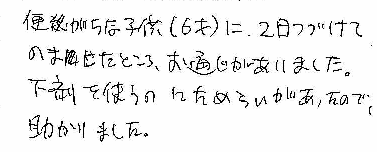 便秘がちな子供(6才)に、2日つづけて
のませたところ、お通じがありました。
下剤を使うのにためらいがあったので、
助かりました。